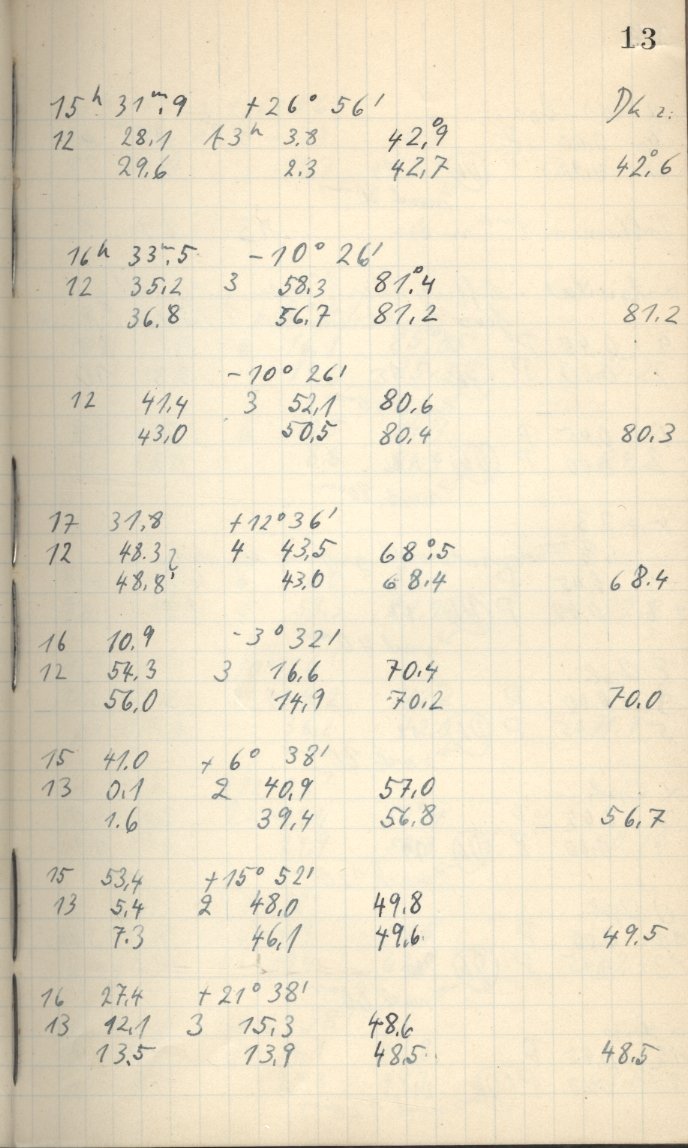 13
15ʰ 31ᵐ.9 +26° 56'
12 28.1 +3ʰ 3.8 42°.9
29.6 2.3 42.7 42°.6
16ʰ 33ᵐ.5 -10° 26'
12 35.2 3 58.3 81°.4
36.8 56.7 81.2 81.2
-10° 26'
12 41.4 3 52.1 80.6
43.0 50.5 80.4 80.3
17 31.8 +12° 36'
12 48.3 4 43.5 68°.5
48.8 43.0 68.4 68.4
16 10.9 -3° 32'
12 54.3 3 16.6 70.4
56.0 14.9 70.2 70.0
15 41.0 +6° 38'
13 0.1 2 40.9 57.0
1.6 39.4 56.8 56.7
15 53.4 +15° 52'
13 5.4 2 48.0 49.8
7.3 46.1 49.6 49.5
16 27.4 +21° 38'
13 12.1 3 15.3 48.6
13.5 13.9 48.5 48.5